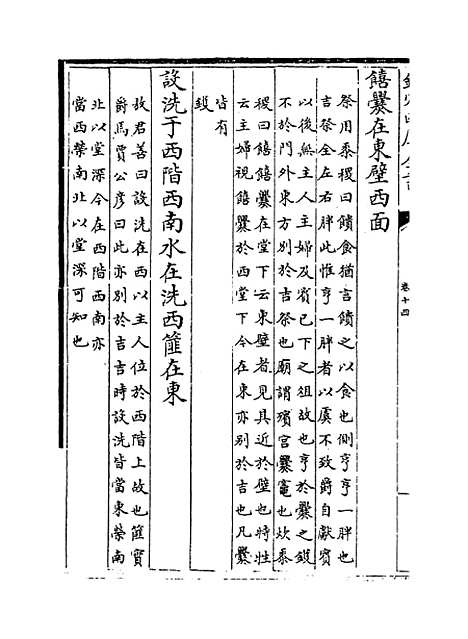 欽定四庫全書
卷十四
祭用黍稷曰饋食猶言饋之以食也側亨亨一胖也
言祭全左右胖此惟亨一胖者以虞不致爵自獻賓
以後無主人主婦及賓已下之俎故也亨於爨之鑊
不於門外東方別於吉祭也廟謂殯宮爨竈也炊黍
饎爨在東壁西面
稷曰饎饎爨在堂下云東壁者見其近於壁也特牲
云主婦視饎爨於西堂下今在東亦別於吉也凡爨
皆有
鑊
設洗于西階西南水在洗西篚在東
故君善曰設洗在西以主人位於西階上故也篚實
爵焉賈公彦曰此亦別於吉吉時設洗皆當東榮南
北以堂深今在西階西南亦
當西榮南北以堂深可知也